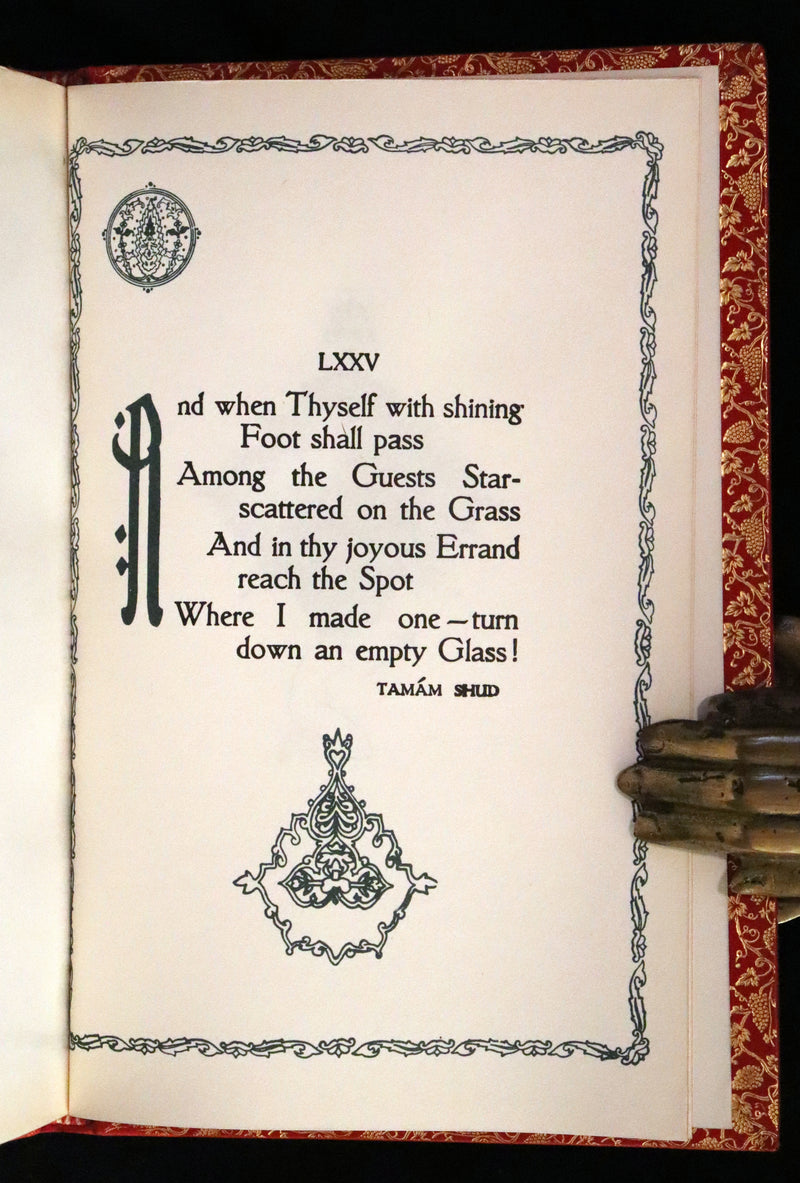 LXXV
And when Thyself with shining
Foot shall pass
Among the Guests Star-
scattered on the Grass
And in thy joyous Errand
reach the Spot
Where I made one—turn
down an empty Glass!
TAMÁM SHUD